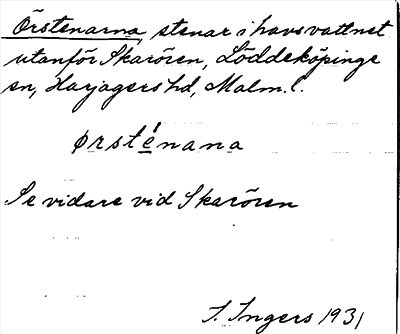 Örstenarna, stenar i havsvattnet
utanför Skarören, Löddeköpinge
sn, Harjagers hd, Malm. l.
ørsténana
Se vidare vid Skarören
I. Ingers 1931